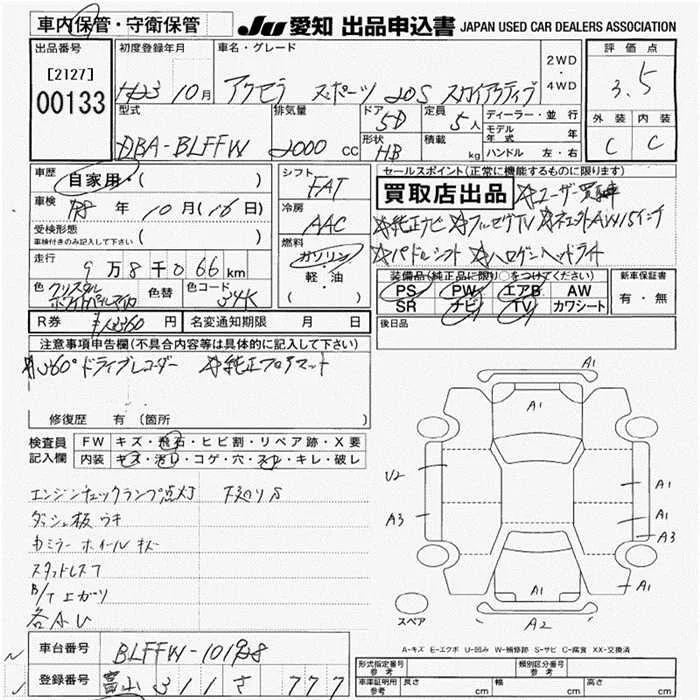 車内保管・守衛保管 JU 愛知 出品申込書 JAPAN USED CAR DEALERS ASSOCIATION
出品番号 初度登録年月 車名・グレード 2WD・4WD 評価点
[2127]
00133
H23 10月 アクセラ スポーツ 20S スカイアクティブ 3.5
型式 排気量 ドア 5D 定員 5人 ディーラー・並行 外装 内装
DBA-BLFFW 2000 cc 形状 HB 積載 kg モデル年式 年 C C
ハンドル 左・右
車歴 自家用・( ) シフト FAT セールスポイント(正常に機能するものに限ります)
買取店出品 ☆ユーザー買取車
車検 R8 年 10月(16日) 冷房 AAC
☆純正ナビ ☆フルセグTV ☆ 15インチ
受検形態 車検付きのみ記入して下さい ( ) 燃料 ガソリン・軽・油
☆パドルシフト ☆ハロゲンヘッドライト
走行 9万8千066km 装備品(純正品に限り○をつけてください) 新車保証書
色 クリスタルホワイトパール 色替 色コード 34K PS PW エアB AW 有・無
SR ナビ TV カワシート
R券 円 名変通知期限 月 日 後日品
注意事項申告欄(不具合内容等は具体的に記入して下さい)
☆360°ドライブレコーダー ☆純正フロアマット
修復歴 有 (箇所 )
検査員記入欄 FW キズ・飛石・ヒビ割・リペア跡・X要
内装 キズ・汚れ・コゲ・穴・スレ・キレ・破レ
エンジンチェックランプ点灯 下廻りS
ダッシュ板 ウキ
カミラー ホイール キズ
スタッドレス
B/T 上ガリ
各AU
A1
A1
U2
A1
A3
A1
A3
A1
A1
A2
スペア
A-キズ E-エクボ U-凹み W-補修跡 S-サビ C-腐食 XX-交換済
車台番号 BLFFW-101928
登録番号 富山 311 さ 777
形式指定番号 参考 類別区分番号 参考
車庫証明用 参考 長さ cm 幅 cm 高さ cm